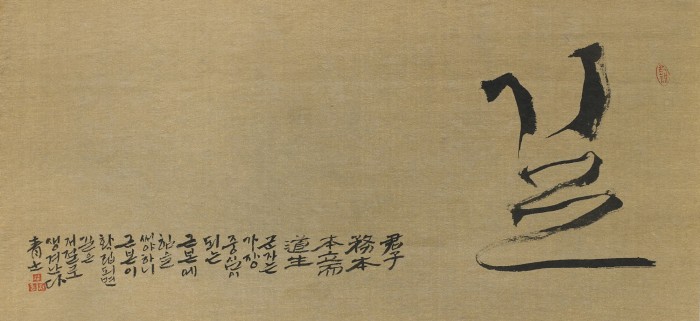 길
君子
務本
本立而
道生
군자는
가장
중심이
되는
근본에
힘을
써야하니
근본이
확립되면
길은
저절로
생겨난다